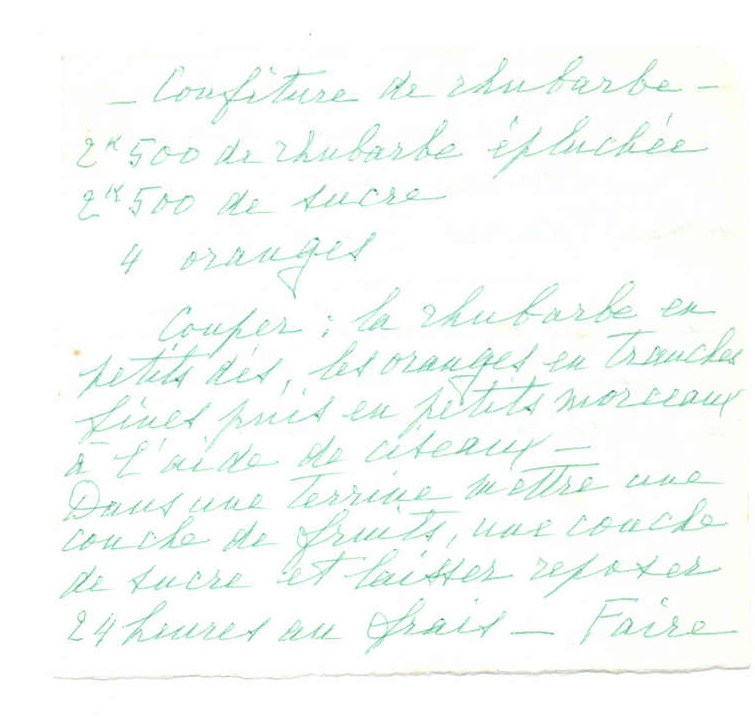 - Confiture de rhubarbe -
2K500 de rhubarbe épluchée
2K500 de sucre
4 oranges
Couper : la rhubarbe en
petits dés, les oranges en tranches
fines puis en petits morceaux
à l'aide de ciseaux -
Dans une terrine mettre une
couche de fruits, une couche
de sucre et laisser reposer
24 heures au frais - Faire